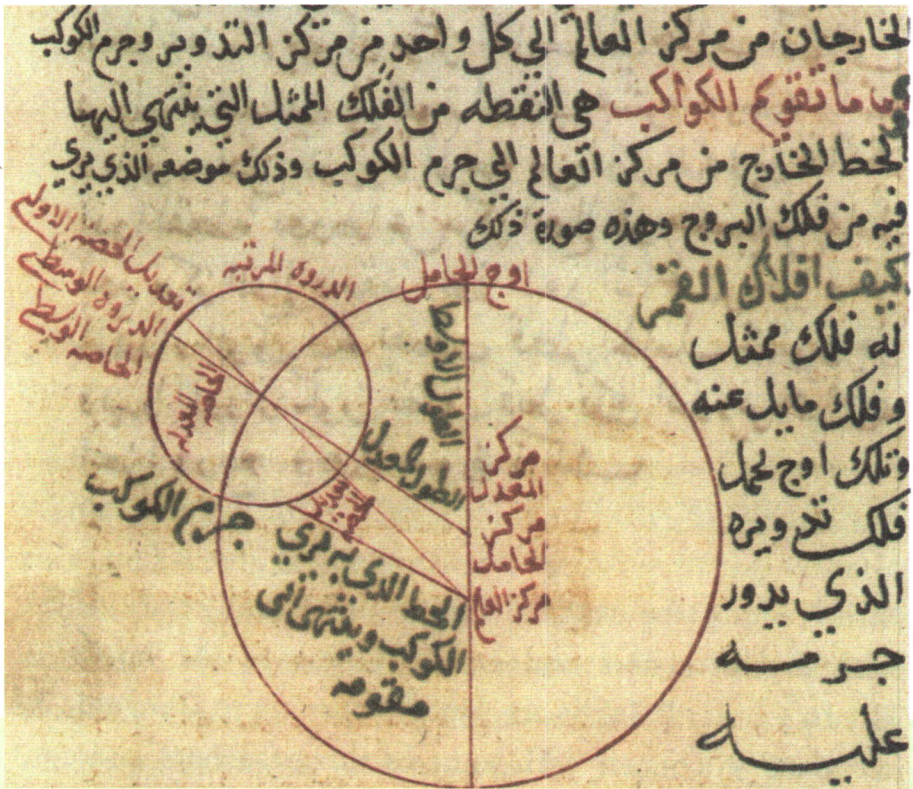 الخارجان من مركز العالم الي كل واحد من مركز التدوير وجرم الكوكب
واما ما تقوم الكواكب هي النقطه من الفلك الممثل التي ينتهي اليها
الخط الخارج من مركز العالم الي جرم الكوكب وذلك موضعه الذي يري
فيه من فلك البروج وهذه صورة ذلك
كيف افلاك القمر
له فلك ممثل
وفلك مايل عنه
وتلك اوج لحمل
فلك تدويره
الذي يدور
جرمه
عليه
تعديل الحصه الاولي
الدروة الوسطي
الخاصه الوسطي
الدروة المرتبه
اوج الحامل
الطول الاوسط
الطول المعدل
مركز
المعدل
مركز
الحامل
مركز العالم
جرم الكوكب
الخط الذي به يري
الكوكب وينتهي الي
مقومه